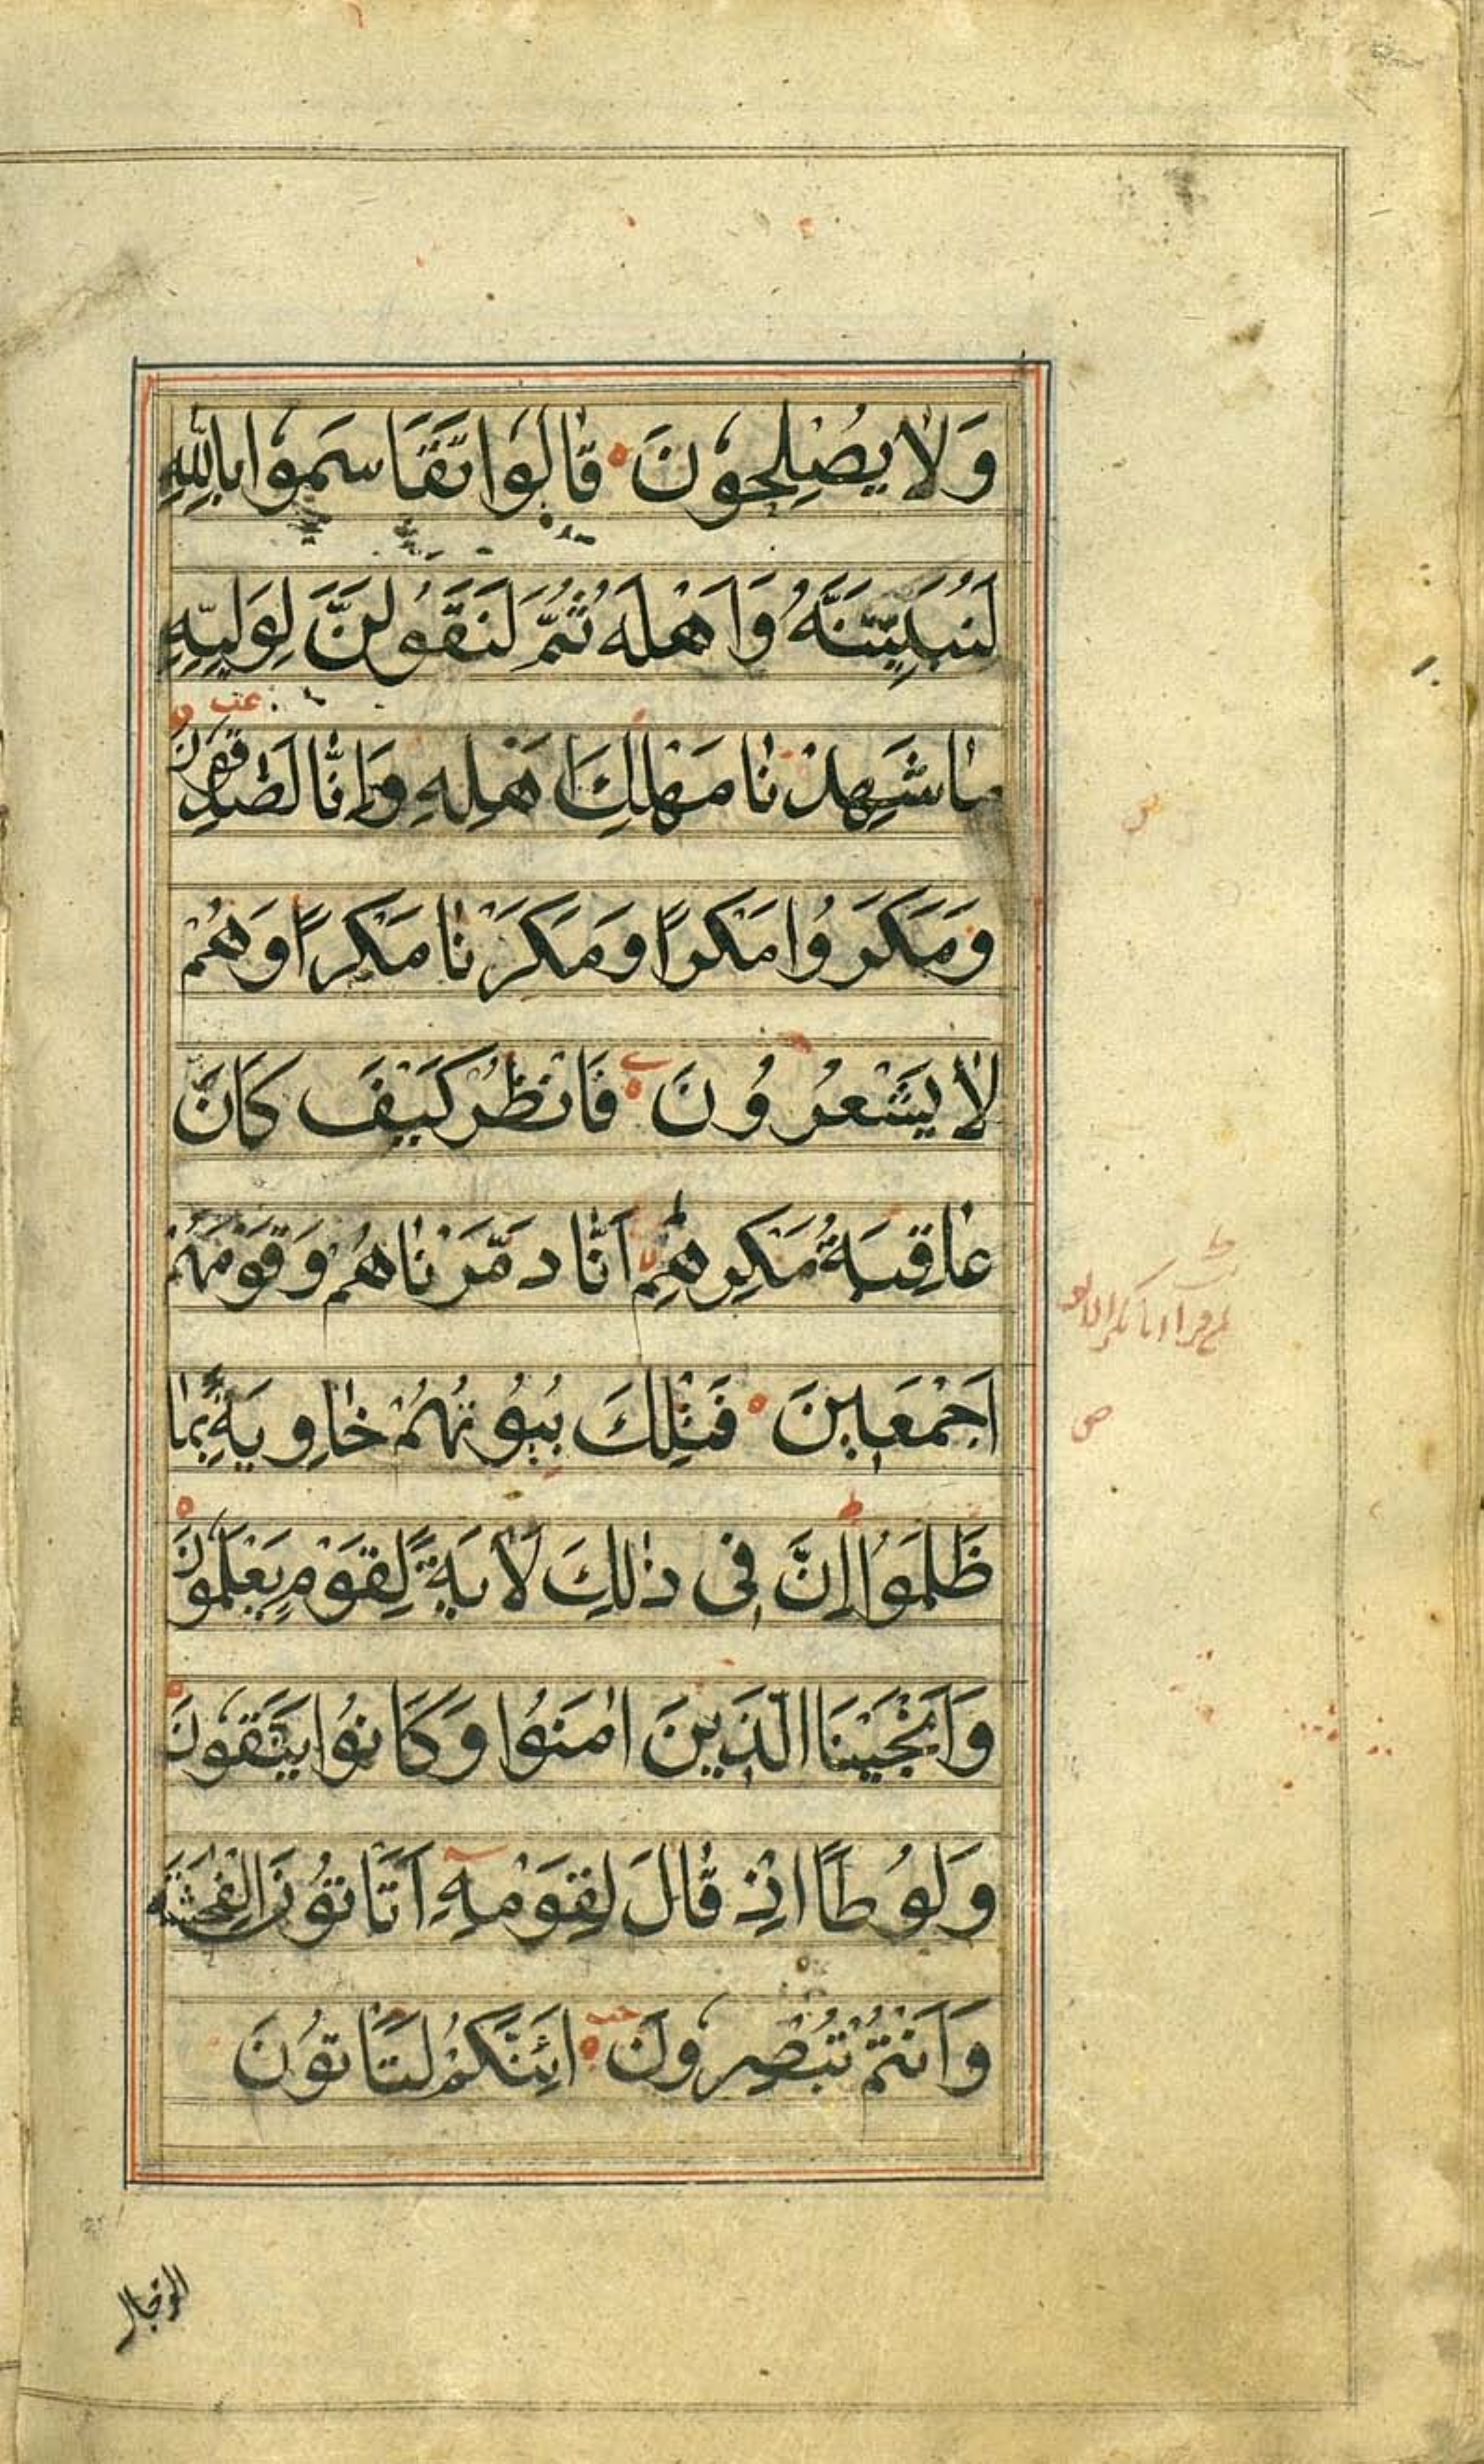 وَلَا يُصْلِحُونَ قَالُوا تَقَاسَمُوا بِاللهِ
لَنُبَيِّتَنَّهُ وَاَهْلَهُ ثُمَّ لَنَقُولَنَّ لِوَلِيِّهِ
مَا شَهِدْنَا مَهْلِكَ اَهْلِهِ وَاِنَّا لَصَادِقُونَ
وَمَكَرُوا مَكْرًا وَمَكَرْنَا مَكْرًا وَهُمْ
لَا يَشْعُرُونَ فَانْظُرْ كَيْفَ كَانَ
عَاقِبَةُ مَكْرِهِمْ اَنَّا دَمَّرْنَاهُمْ وَقَوْمَهُمْ
اَجْمَعِينَ فَتِلْكَ بُيُوتُهُمْ خَاوِيَةً بِمَا
ظَلَمُوا اِنَّ فِى ذٰلِكَ لَاٰيَةً لِقَوْمٍ يَعْلَمُونَ
وَاَنْجَيْنَا الَّذِينَ اٰمَنُوا وَكَانُوا يَتَّقُونَ
وَلُوطًا اِذْ قَالَ لِقَوْمِهِ اَتَأْتُونَ الْفَحِشَةَ
وَاَنْتُمْ تُبْصِرُونَ اَئِنَّكُمْ لَتَأْتُونَ
الرجال